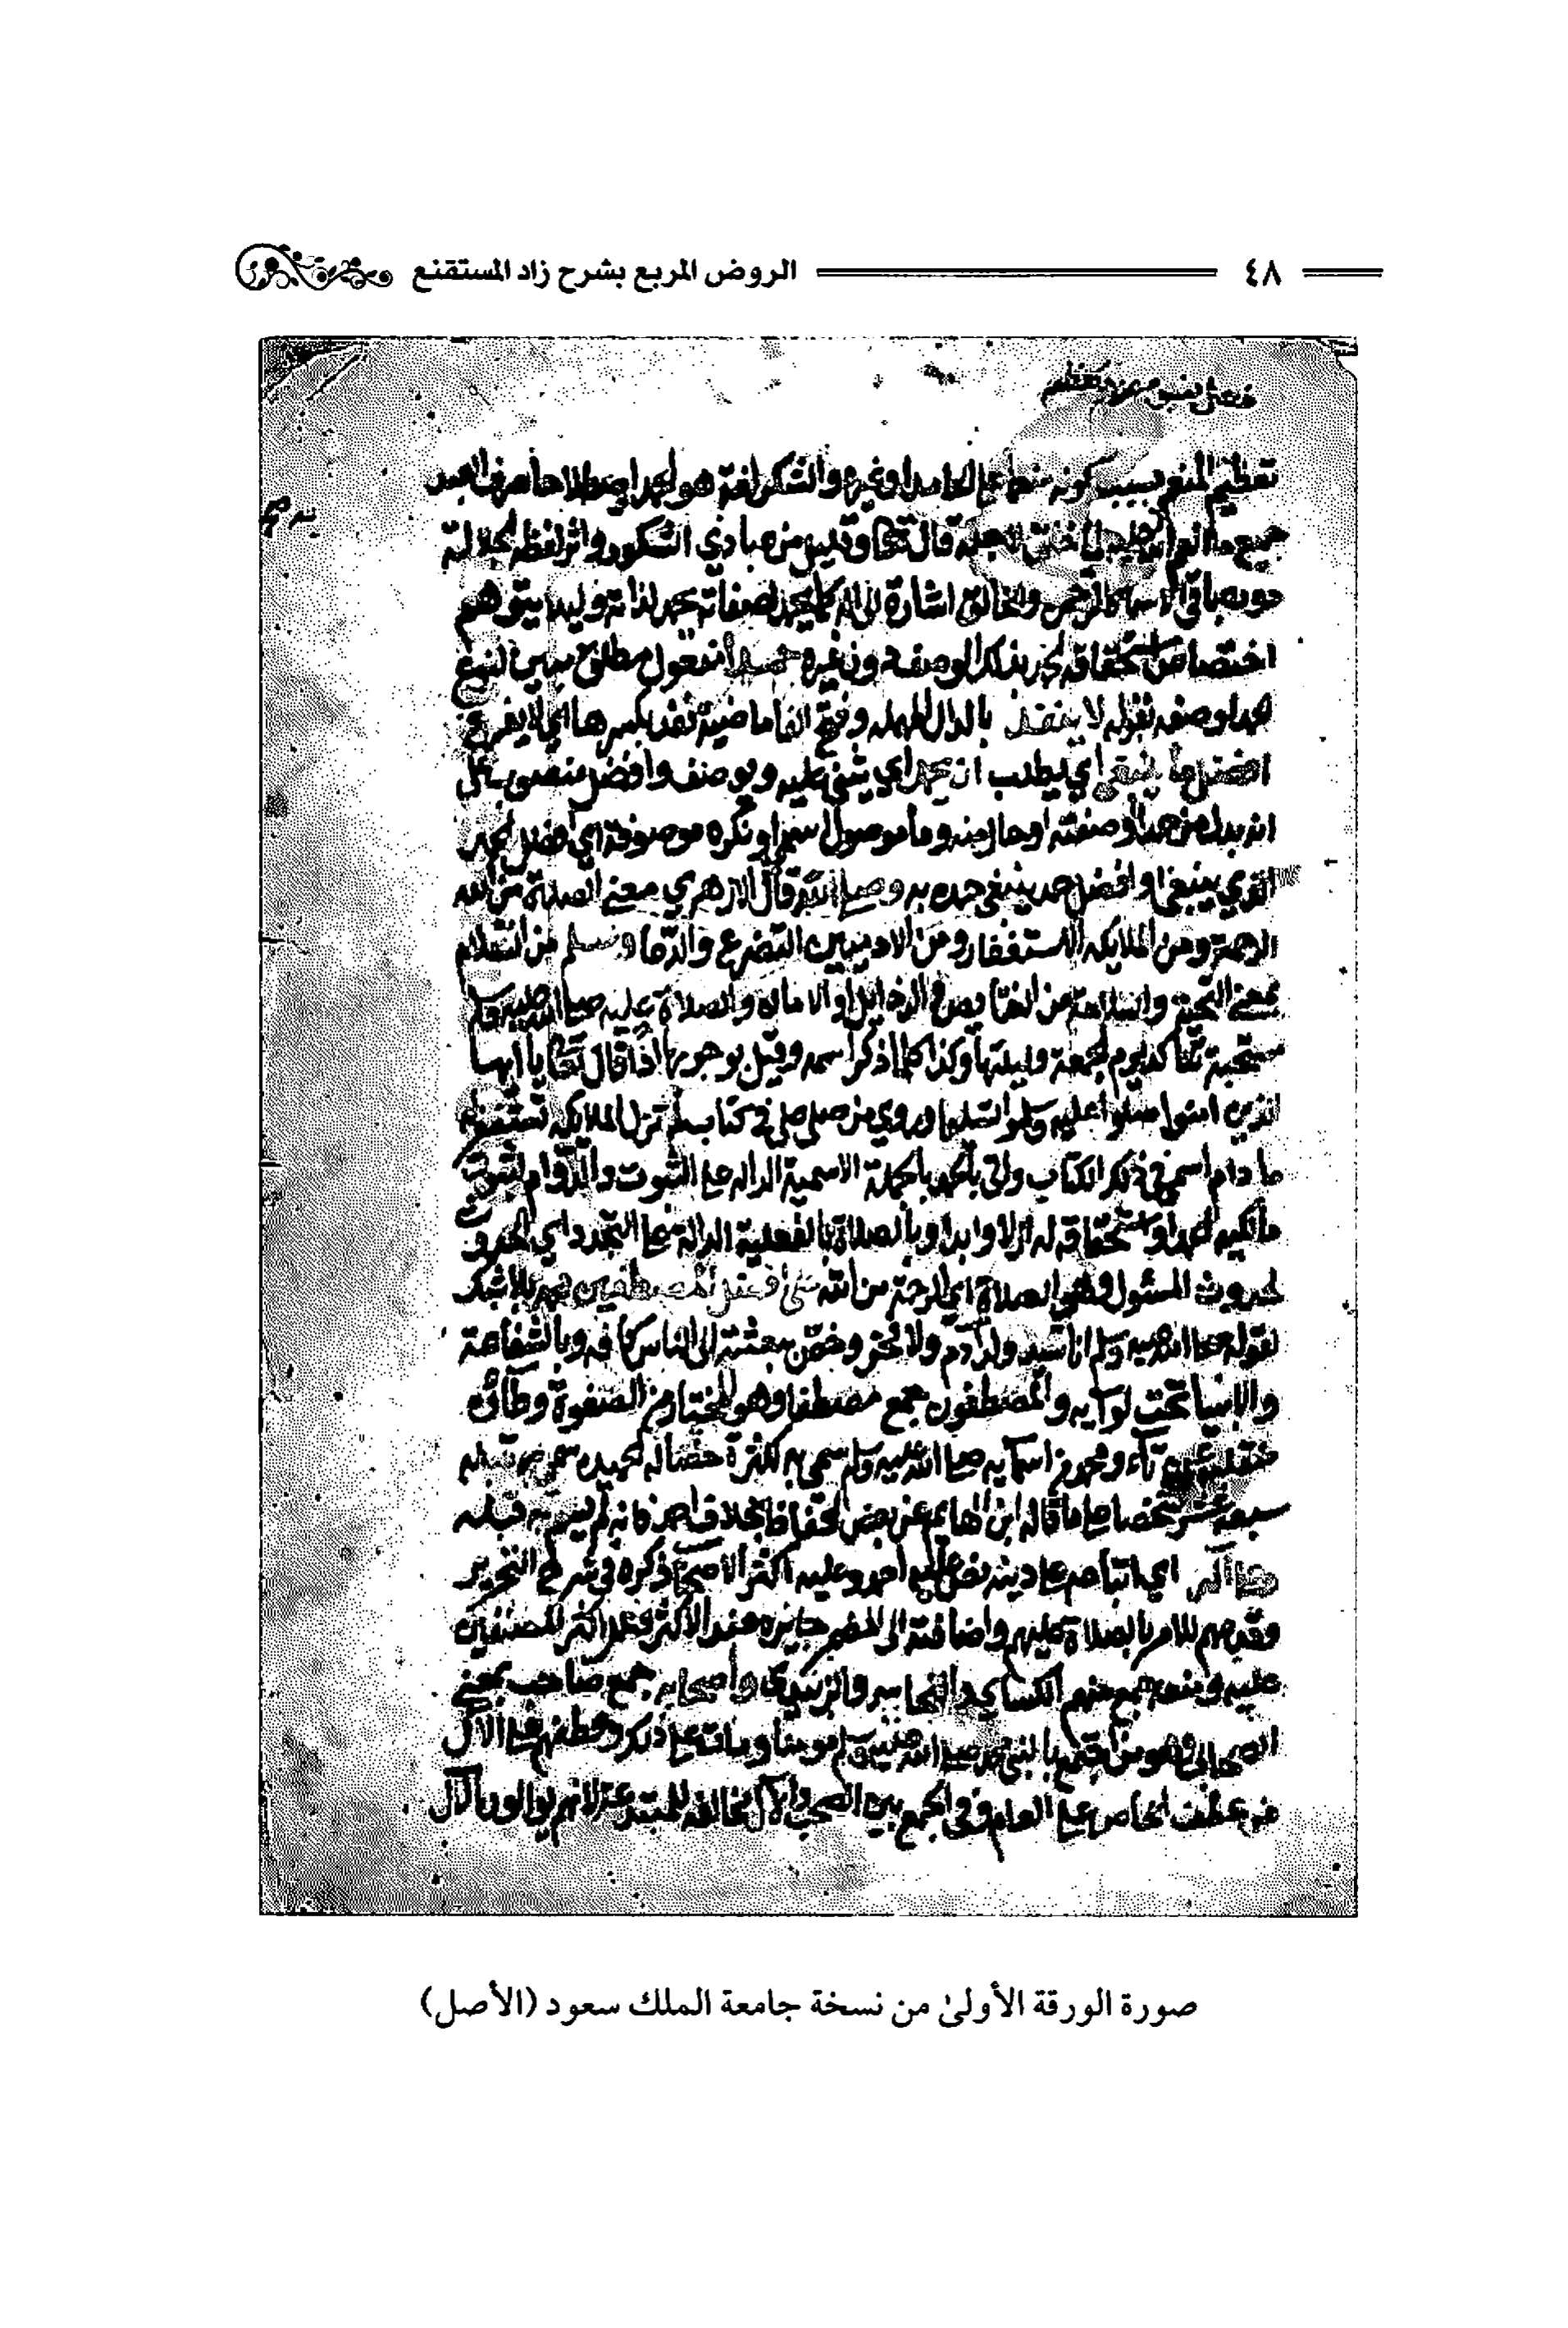 ٤٨ الروض المربع بشرح زاد المستقنع
تعظيم المنعم بسبب كونه منعما على الحامد او غيره والشكر لغة هو الحمد اصطلاحا صرف العبد
جميع ما انعم الله عليه لما خلق لاجله قال تعالى وقليل من عبادي الشكور واثر لفظ الجلالة
دون باقي الاسما كالرحمن والخالق اشارة الى انه كما يحمد لصفاته يحمد لذاته وليلا يتوهم
اختصاص استحقاقه الحمد بذلك الوصف دون غيره حمدا مفعول مطلق مبين لنوع
الحمد لوصفه بقوله لا ينفد بالدال المهمله وفتح الفا ماضيه نفد بكسرها اي لا يفرغ
افضل ما ينبغي اي يطلب ان يحمد اي يثنى عليه ويوصف وافضل منصوب على
انه بدل من حمدا او صفته او حال منه وما موصول اسمي او نكره موصوفة اي افضل الحمد
الذي ينبغي او افضل حمد ينبغي حمده به وصلى الله قال الازهري معنى الصلاة من الله
الرحمة ومن الملايكه الاستغفار ومن الادميين التضرع والدعا وسلم من السلام
بمعنى التحية والسلامة من النقايص والرذايل او الامان والصلاة عليه صلى الله عليه وسلم
مستحبة تتاكد يوم الجمعة وليلتها وكذا كلما ذكر اسمه وقيل بوجوبها اذا قال تعالى يا ايها
الذين امنوا صلوا عليه وسلموا تسليما وروي من صلى علي في كتاب لم تزل الملايكه تستغفر له
ما دام اسمي في ذلك الكتاب واتى بالحمد بالجملة الاسمية الداله على الثبوت والدوام لثبوت
مالكيه الحمد او استحقاقه له ازلا وابدا وبالصلاة بالفعلية الدالة على التجدد اي الحدوث
لحدوث المسئول وهو الصلاة اي الرحمة من الله على افضل المصطفين محمد بلا شك
لقوله صلى الله عليه وسلم انا سيد ولد آدم ولا فخر وخص ببعثته الى الناس كافه وبالشفاعة
والانبيا تحت لوآيه والمصطفون جمع مصطفى وهو المختار من الصفوة وطآؤه
منقلبة عن تآء ومحمد من اسمآيه صلى الله عليه وسلم سمي به لكثرة خصاله الحميده سمي به قبله
سبعة عشر شخصا على ما قاله ابن الهايم عن بعض الحفاظ بخلاف احمد فانه لم يسم به قبله
وعلى آله اي اتباعه على دينه نص عليه احمد وعليه اكثر الاصحاب ذكره في شرح التحرير
وقدمهم للامر بالصلاة عليهم واضافته الى الضمير جايزه عند الاكثر وعمل اكثر المصنفين
عليه ومنعه جمع منهم الكساي والنحاس والزبيدي واصحابه جمع صاحب بمعنى
الصحابي وهو من اجتمع بالنبي محمد صلى الله عليه وسلم مومنا ومات على ذلك وعطفهم على الآل
من عطف الخاص على العام وفي الجمع بين الصحب والآل مخالفه للمبتدعة لانهم يوالون الآل
صورة الورقة الأولى من نسخة جامعة الملك سعود (الأصل)